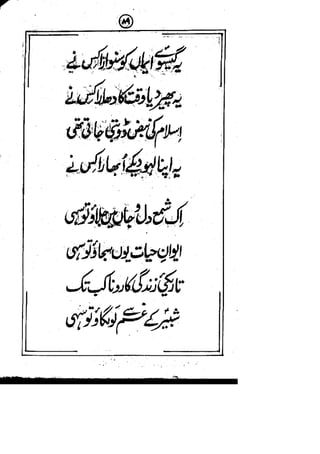 ۸۹
یہ گیسوے ایماں کو سنوارا کس نے
یہ پھیر دیا وقت کا دھارا کس نے
اسلام کی نبض ڈوبتی جاتی تھی
یہ اپنا لہو دیکے اُبھارا کس نے
اک شمع دل و جاں میں جلاؤ تو سہی
ایوانِ حیات یوں سجاؤ تو سہی
تاریکیٔ زندگی کا رونا کب تک
شبیرؑ کے غم سے لَو لگاؤ تو سہی